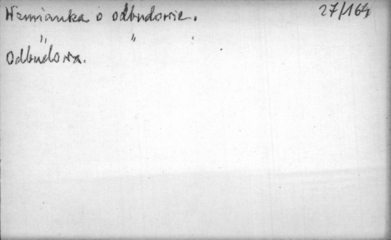 Wzmianka o odbudowie. 27/164
" " .
Odbudowa.